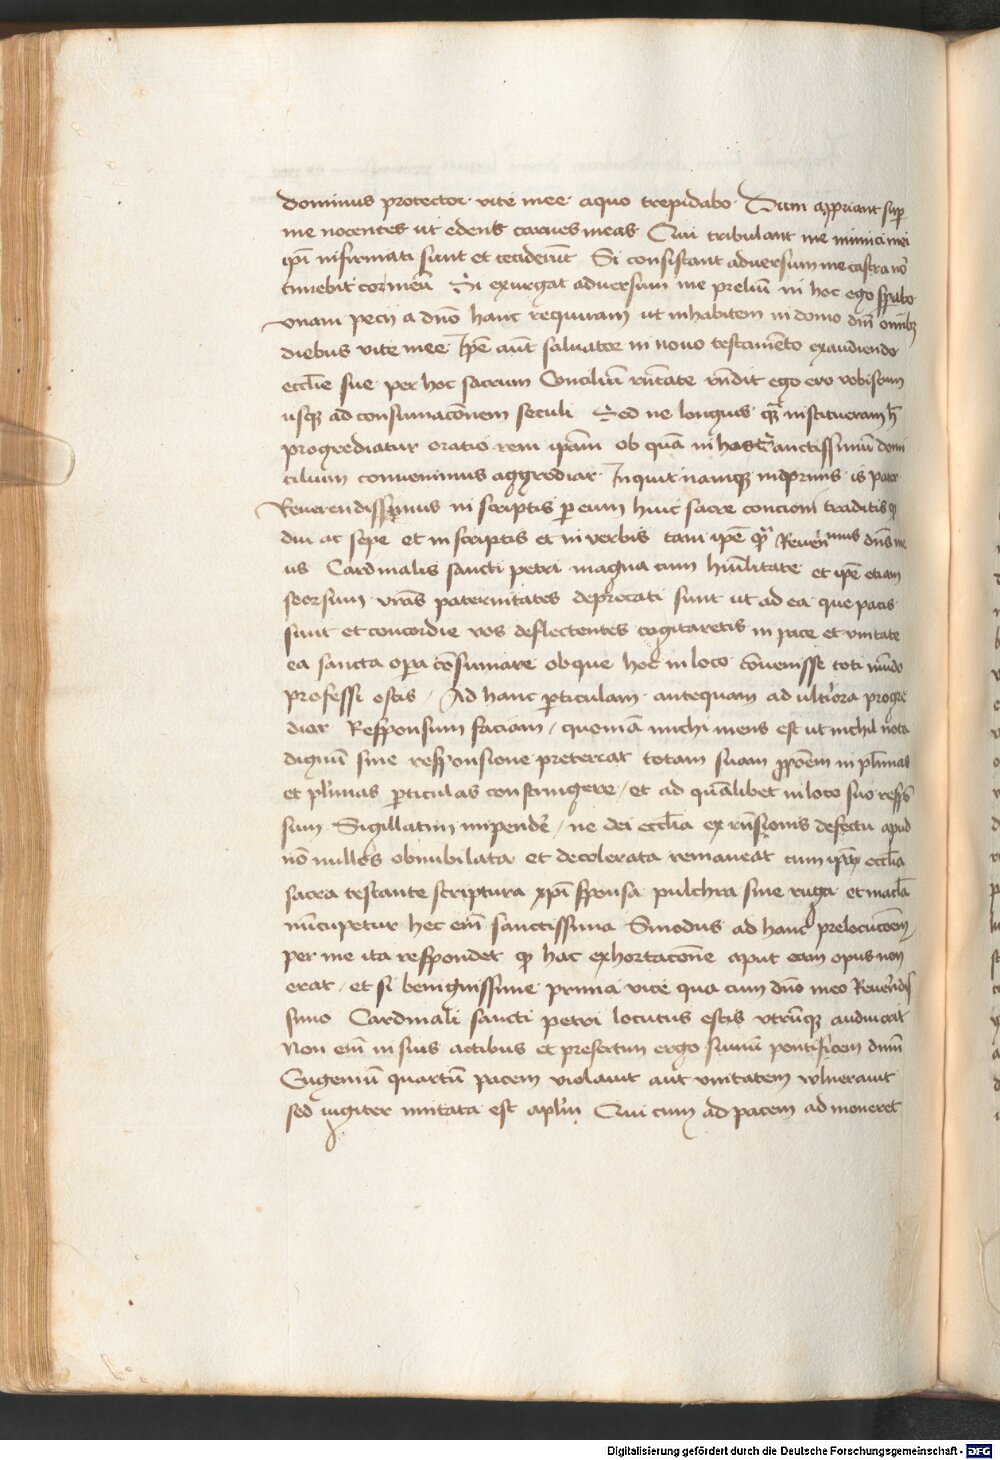 dominus protector vite mee aquo trepidabo Dum appriant sup
me nocentes ut edent carnes meas Qui tribulant me inimici mei
ipī infirmati sunt et ceciderūt Si consistant adversum me castra nō
timebit cor meū Si exurgat adversum me preliū in hoc ego sperabo
vnam pecij a dnō hanc requiram ut inhabitem in domo dnī omnibꝫ
diebus vite mee Ipē aūt saluator in nouo testamēto exaudiendo
eccliē sue per hoc sacrum Conciliū vnitate rn̄dit ego ero vobiscum
usqꝫ ad consumacōnem seculi Sed ne longius qꝫ institueram
progrediatur oratio rem ipām ob quā in hoc Sanctissimū domi
cilium convenimus aggrediar Inquit namqꝫ inprimis is pater
Reverendissimus in scriptis per eum huic sacre concioni traditis qꝫ
diu ac sepe et in scriptis et in verbis tam ipē qꝫ Revermus dns me
us Cardinalis sancti petri magna cum humilitate et ipē etiam
seorsum vrās paternitates deprecati sunt ut ad ea que pacis
sunt et concordie vos deflectentes cogitaretis in pace et vnitate
ea sancta opa cōsumare obque hoc in loco cōvenisse toti mūdo
professi estis / Ad hanc pticulam antequam ad ultīora progre
diar Responsum faciam / quoniā michi mens est ut nichil nota
dignū sine responsione pretereat totam suam ppōem in plīmas
et plīmas pticulas constringere / et ad quālibet in loco suo respō
sum Sigillatim impendē / ne dei ecclīa ex rn̄sionis defectu apud
nō nullos obnubilata et decolerata remaneat cum ipā ecclīa
sacra testante scriptura xpī sponsa pulchra sine ruga et macl̄a
nūcupetur hec em̄ sanctissima Sinodus ad hanc prelocucōem
per me ita respondet qꝫ hac exhortacōne aput eam opus non
erat / et si benignissime prima vice qua cum dnō meo Revērdis
simo Cardinali sancti petri locutus estis vtrūqꝫ audiverit
Non em̄ in suis actibus et presertim ergo sūmū pontificem dnm̄
Eugeniū quartū pacem violavit aut vnitatem vulneravit
sed iugiter imitata est aplm̄ Qui cum ad pacem ad moneret
Digitalisierung gefördert durch die Deutsche Forschungsgemeinschaft - DFG